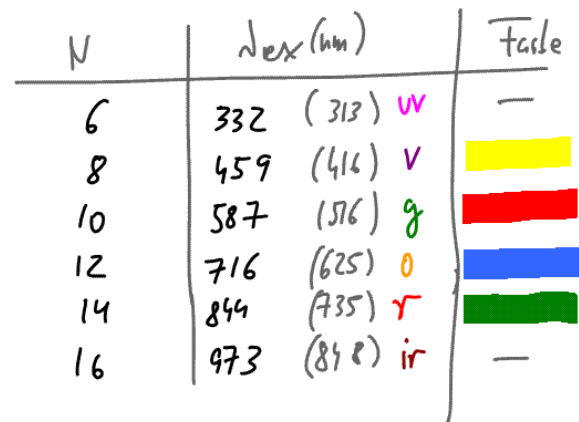 N λex (nm) Farbe
6 332 (313) uv —
8 459 (416) v
10 587 (516) g
12 716 (625) o
14 844 (735) r
16 973 (848) ir —